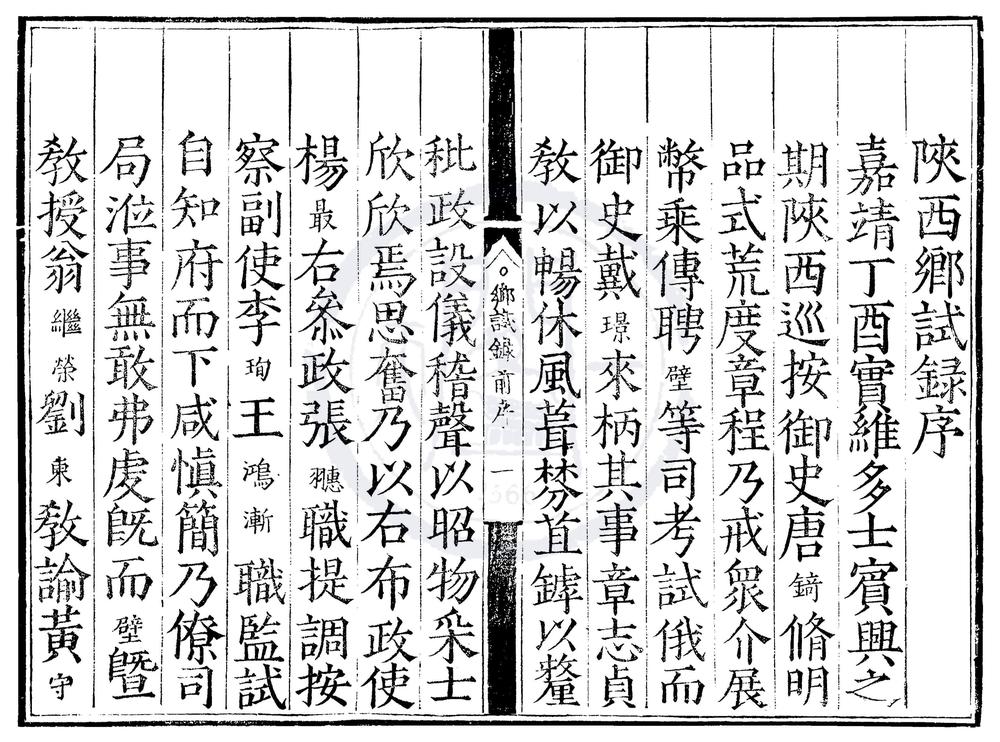 陝西鄉試録序
嘉靖丁酉實維多士賓興之
期陝西巡按御史唐錡脩明
品式荒度章程乃戒衆介展
幣乘傳聘壁等司考試俄而
御史戴璟來柄其事章志貞
教以暢休風葺棼苴罅以釐
鄉試録前序
一
秕政設儀稽聲以昭物采士
欣欣焉思奮乃以右布政使
楊最右叅政張職提調按
察副使李珣王鴻漸職監試
自知府而下咸慎簡乃僚司
局涖事無敢弗虔旣而壁曁
教授翁繼榮劉東教諭黃守